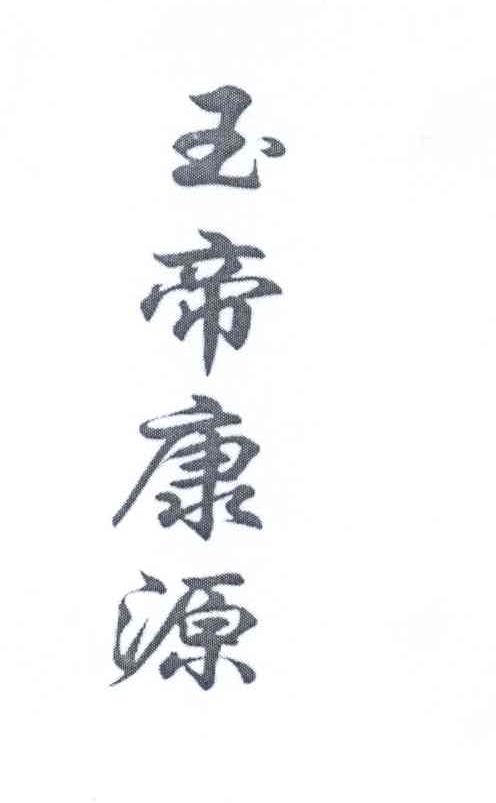 玉帝康源